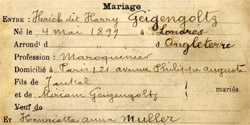 Mariage
ENTRE : Hersch dit Harry Geigengoltz
Né le 4 Mai 1899 à Londres
Arrond' d Angleterre
Profession : Maroquinier
Domicilié à Paris, 21 avenue Philippe Auguste
Fils de Jankel
et de Miriam Geigengoltz
Veuf de
ET Henriette Anna Mueller